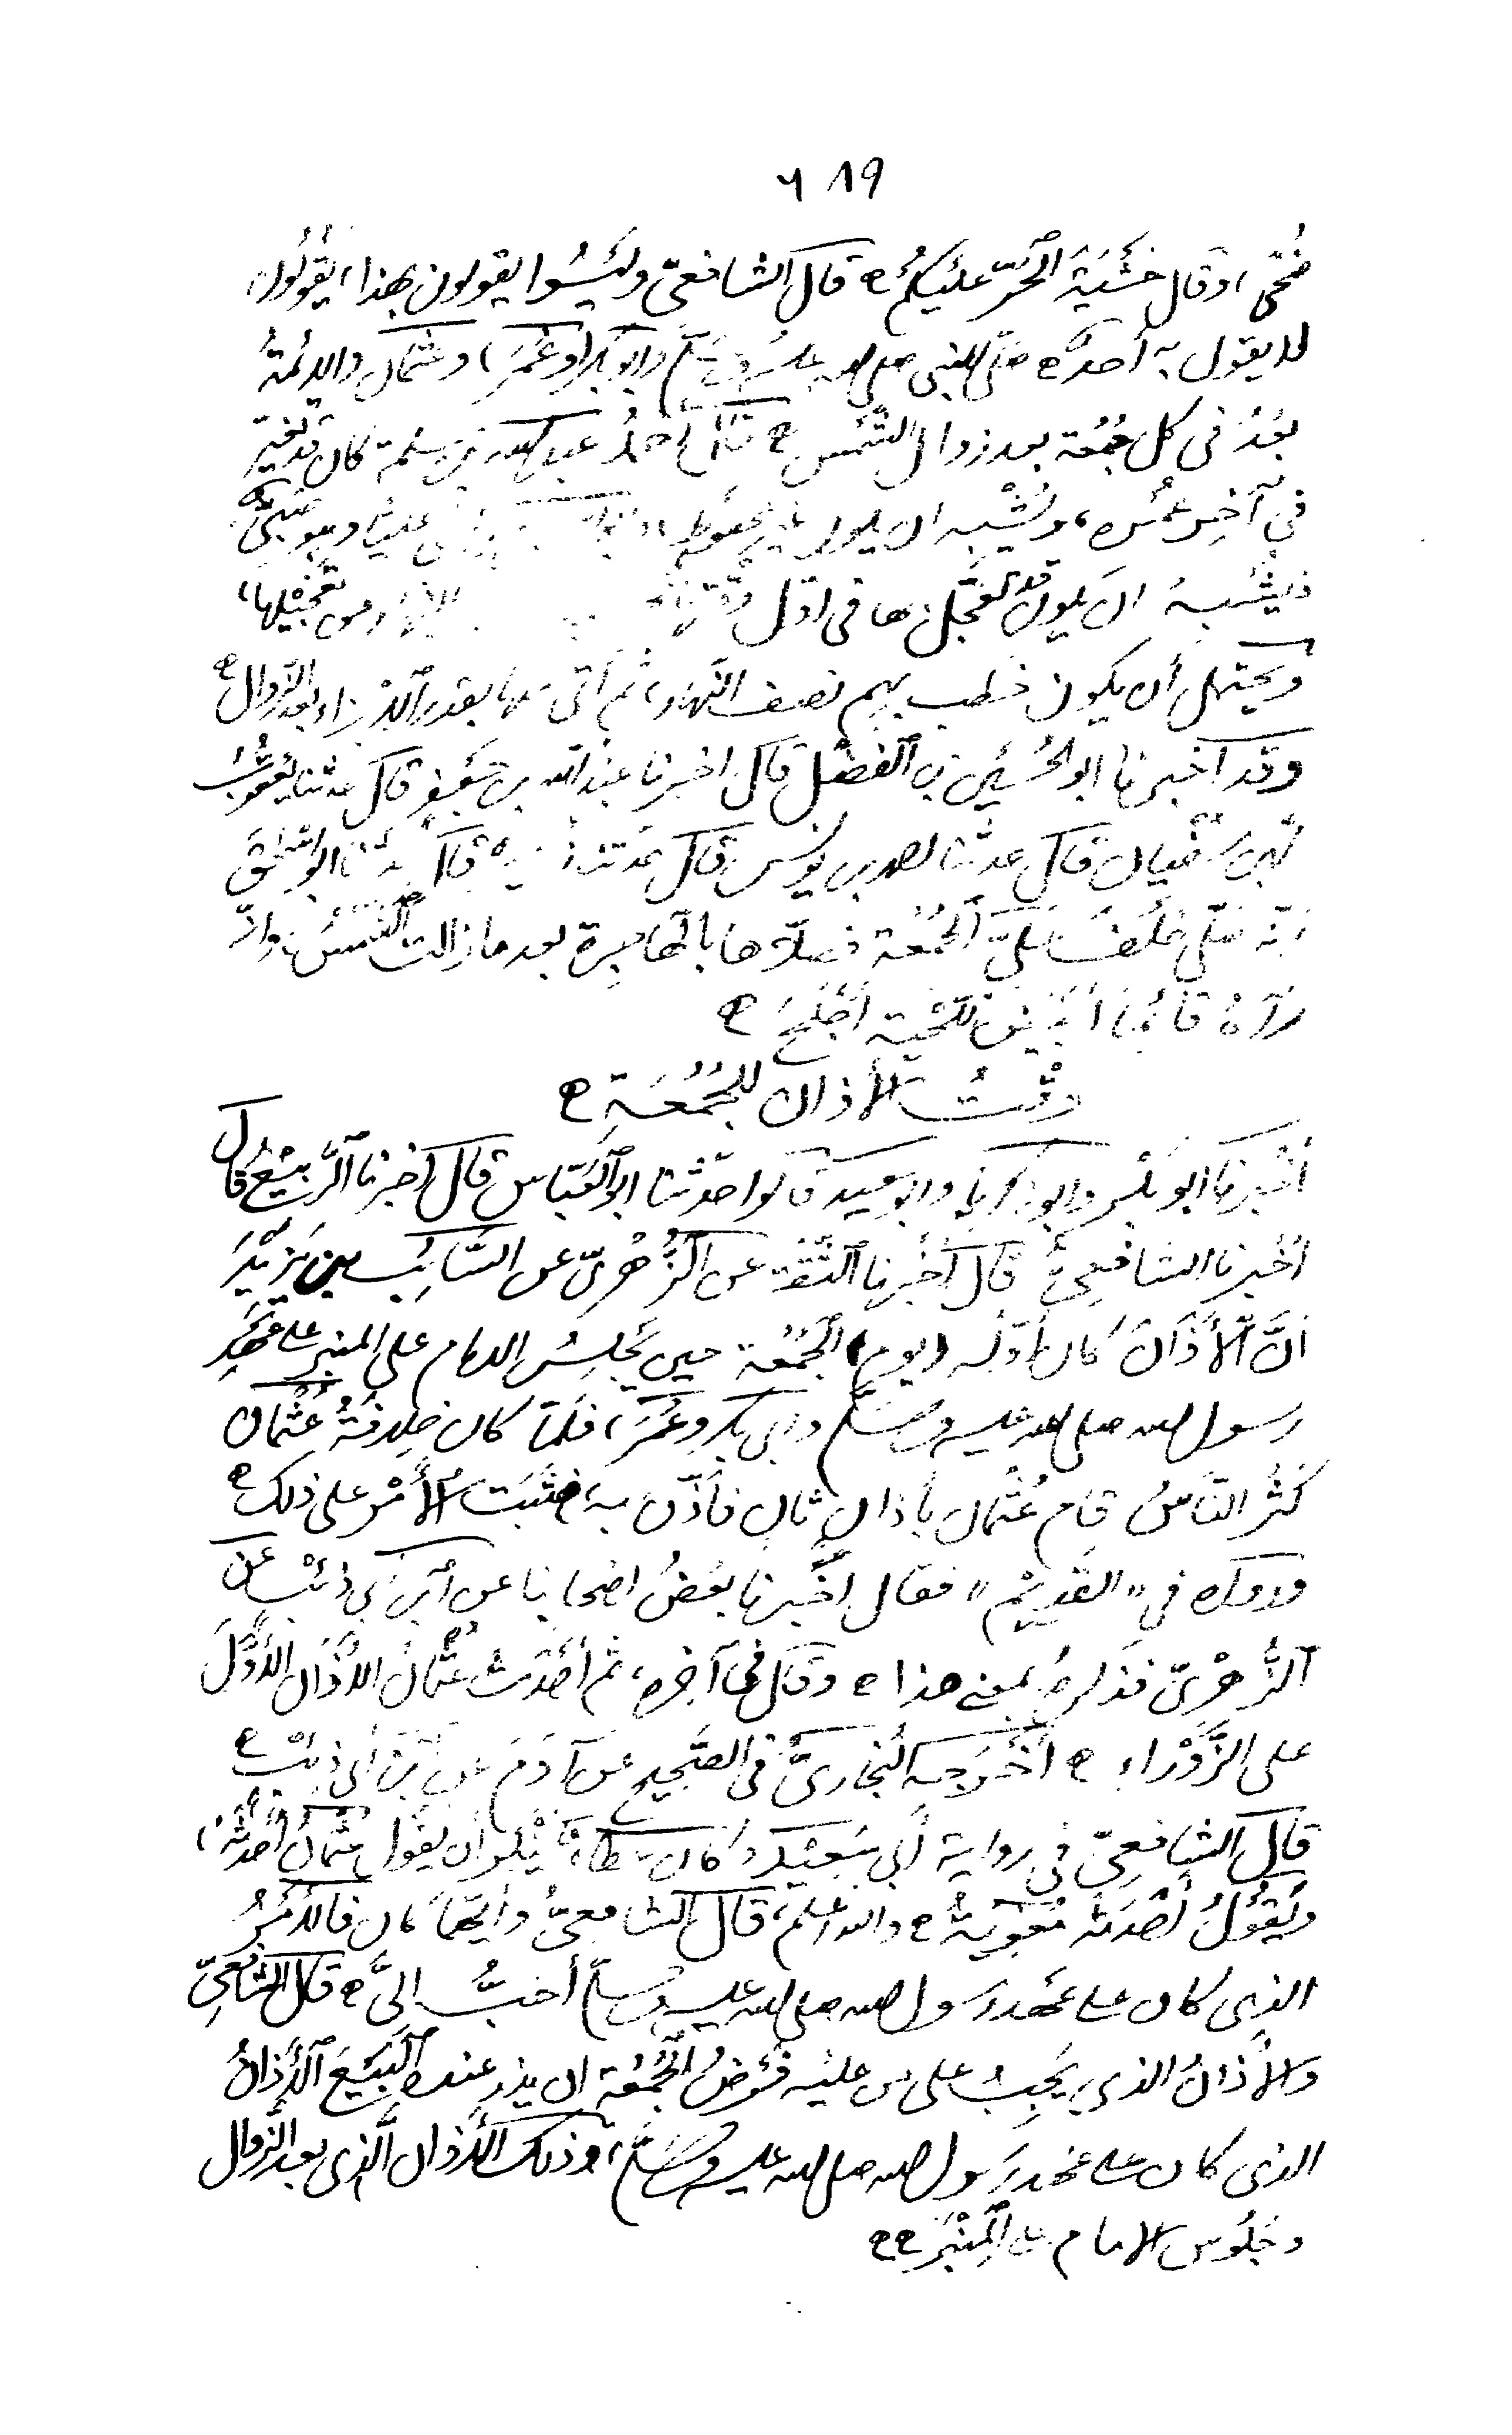 ٦١٩
ضُحًى، وقال خَشْيَةَ الْحَرِّ عَلَيْكُمْ ه قال الشافعيّ وليْسُوا يقولون بهذا، يقُولُون
لا يقول به أحدٌ ه صَلّى النبي صلى الله عليه وسلم وأبو بكر، وعُمَرَ، وعثمان والأئمةُ
بعْدُ في كل جُمُعَة بعد زوال الشَّمْس ه عبد الله بن سلمة كان قد تغير
في آخِر عمُره، ويُشْبِه ان يكون غير محفوظ
فيُشْبِهُ ان يكون تعجّل بها في اوّل وقتها تعْجِيْلِهَا،
ويحتمل أن يكون خطب بهم نصف النّهار، ثم أتى بها بقدر الإجزاء بعد الزّوال ه
وقد اخبرنا ابو الحُسَيْن بن الفضْل قال اخبرنا عبْد الله بن جَعْفرٍ قال حدثنا يعْقوبُ
بْن سُفْيان قال حدّثنا احمد بن يونس قال حدّثنا زهير قال حدّثنا ابو اسْحَق
انّه صَلّى خَلْفَ عَلِيّ الْجُمُعَة فصَلّاها بالهاجِرة بعد ما زالت الشَّمْسُ وانّه
رَآهُ قائمًا أبْيَضَ اللّحْيَة أجْلَحَ ه
وَقْتُ الأذان للجُمُعَة ه
أخْبرنا ابو بَكْر وابو زكريا وابو سعيد قالوا حدّثنا ابو الْعَبّاس قال اخبرنا الرَّبِيْعُ قال
اخْبرنا الشافعِيُّ قال اخْبرنا الثّقة عن الزُّهْريّ عن السّائِب بن يَزِيْدَ
انَّ الأذَانَ كان أوّله (يوم) الجُمُعَة حين يَجْلِسُ الامام على المنبر على عَهْدِ
رسول الله صلى الله عليه وسلم وابي بكر وعُمَرَ، فلمّا كان خلافَةُ عُثْمان
كثُر النّاسُ قام عُثْمان بأذانٍ ثانٍ فأذّن به، فثَبَت الأمْر على ذلك ه
ورواه في "القَدِيْم" فقال اخْبرنا بعْضُ اصْحابنا عن ابْن أبي ذِئب عَن
الزُّهْريّ فذكره بمعنى هذا ه وقال في آخره، ثم أحْدَث عُثْمانُ الأذَان الأوّلَ
على الزَّوْرَاء ه أخْرَجه البُخاريُّ في الصّحيح عَن آدَمَ عَن ابْن أبي ذِئْب ه
قال الشافعيّ في رواية أبي سَعِيْد وكان عطاءٌ يُنْكر أن يقُول عثمانُ أحْدَثَهُ،
ويَقُوْلُ أحْدَثَهُ مُعٰوِيَةُ ه والله أعلم، قال الشافعيُّ وأيّهما كان فالأمْرُ
الذي كان على عَهْد رسول الله صلى الله عليه وسلم أحَبُّ إليَّ ه قال الشّافعيّ
والأذانُ الذي يَجِبُ على من عليْه فَرْضُ الْجُمُعَة ان يذر عنده الْبَيْعَ الأذانُ
الذي كان على عهد رسول الله صلى الله عليه وسلم، وذلك الأذان الّذي بعد الزّوال
وجُلُوس الامام على الْمِنْبَر ه ه